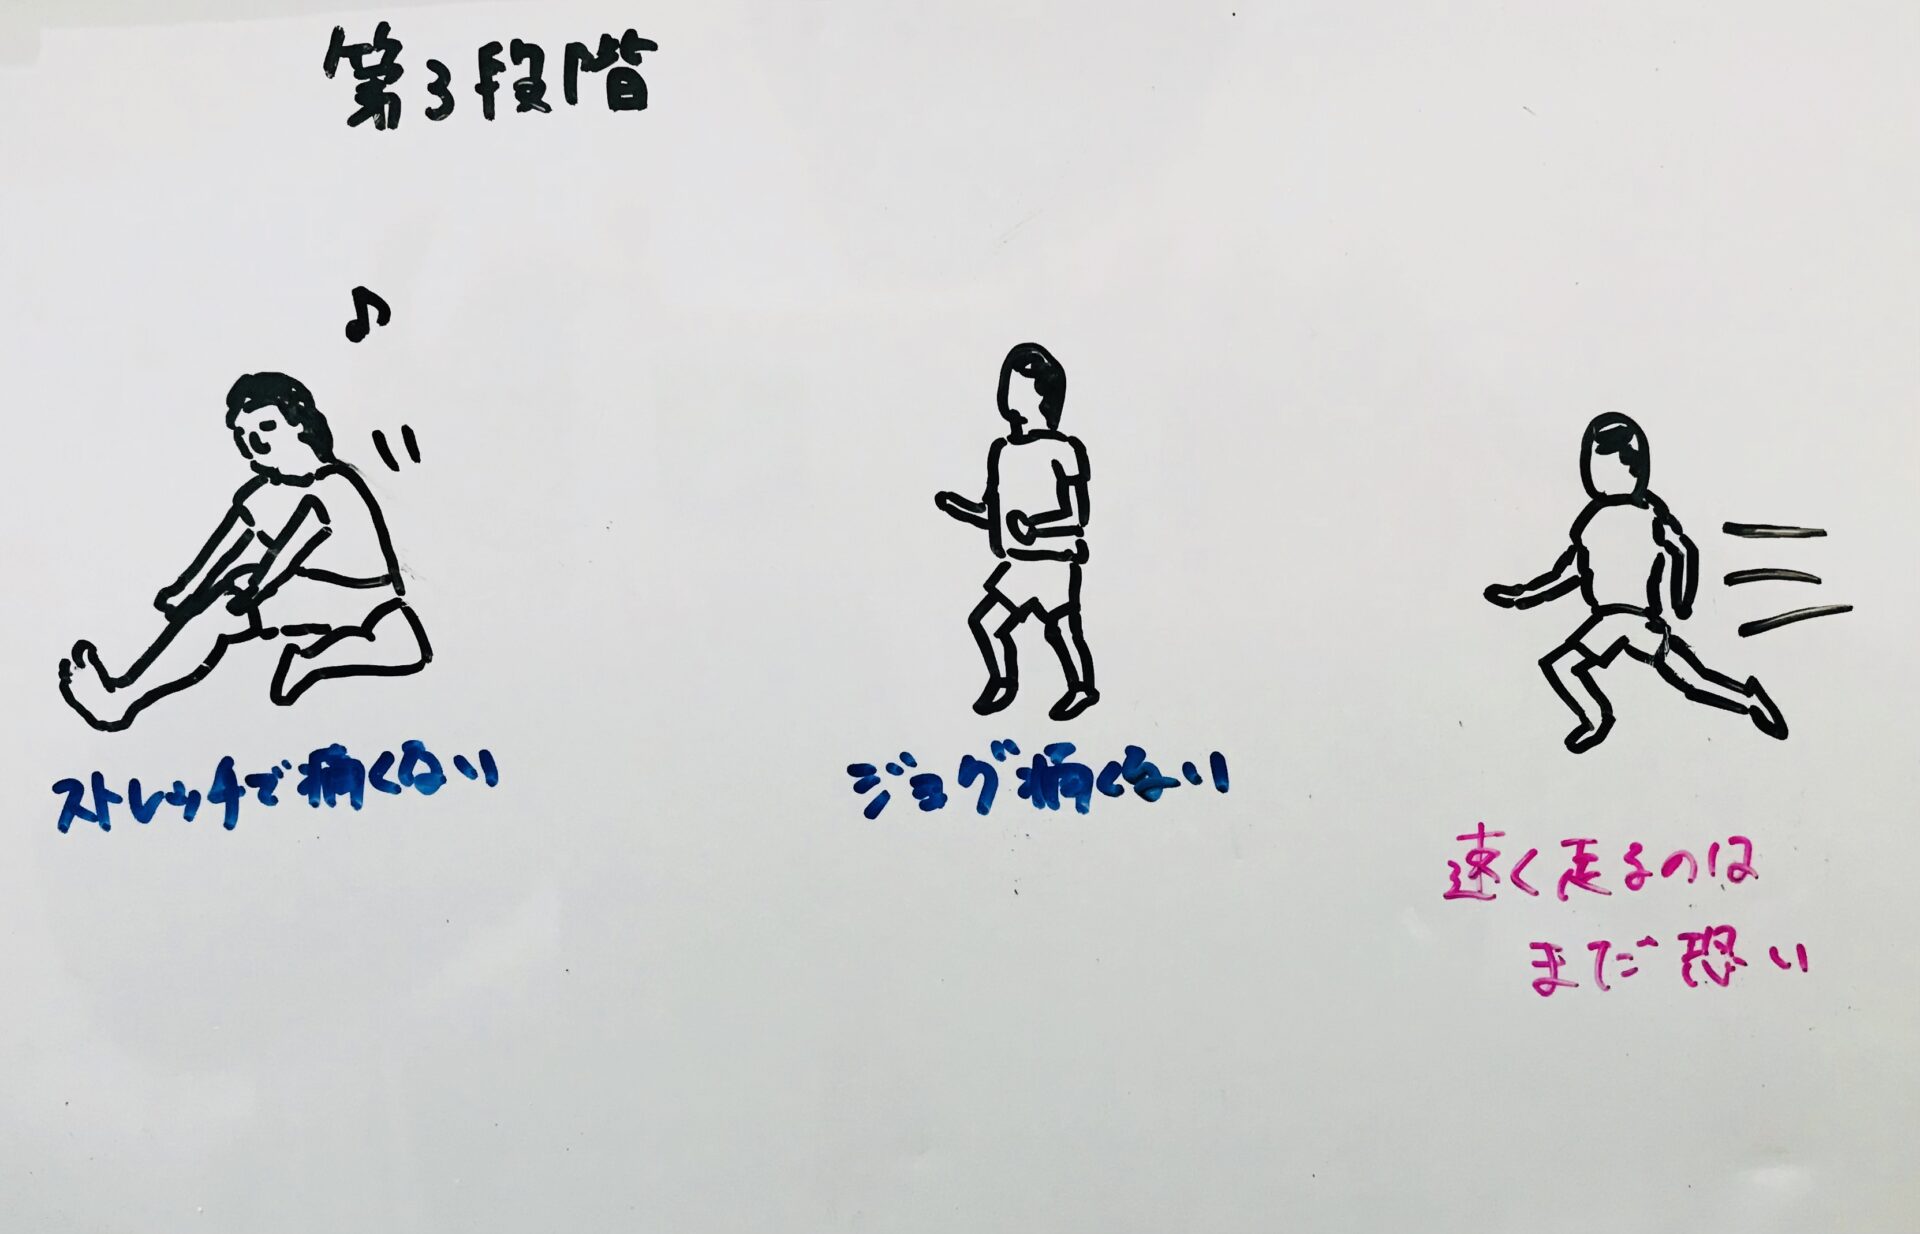 第3段階
ストレッチで痛くない
ジョグ痛くない
速く走るのは
まだ恐い